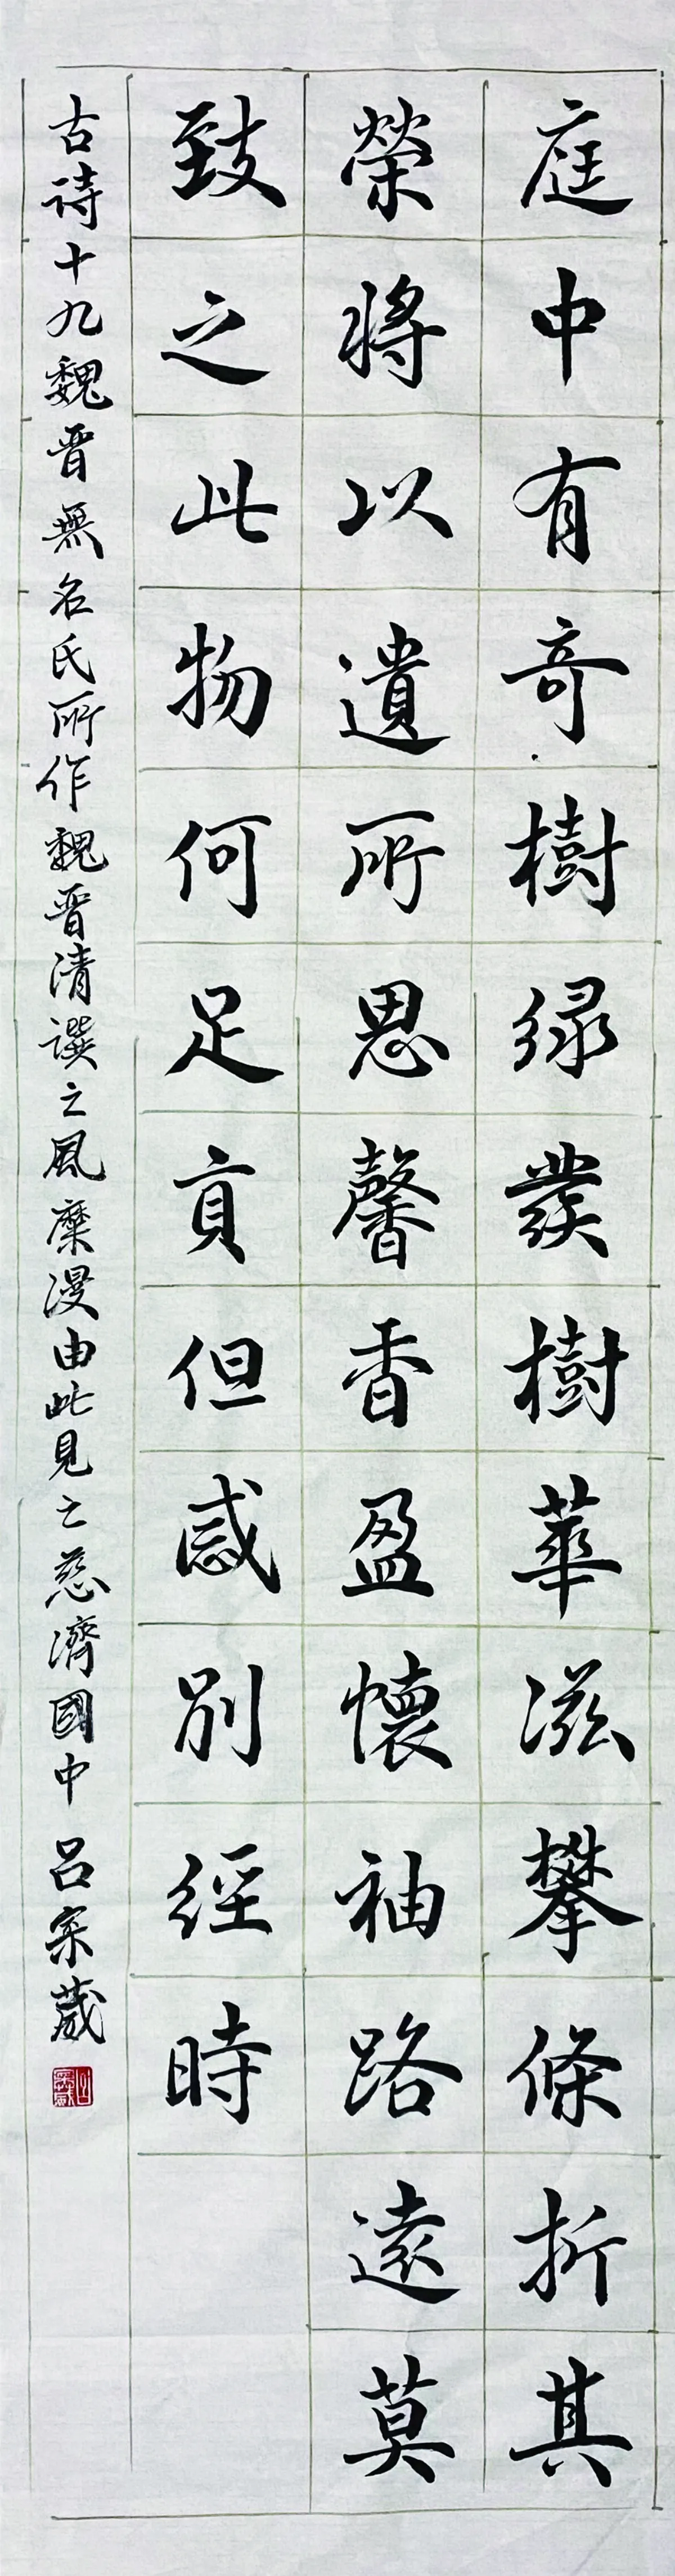 庭中有奇樹緑發樹華滋攀條折其
榮將以遺所思馨香盈懷袖路遠莫
致之此物何足貢但感別經時
古詩十九魏晋無名氏所作魏晋清譔之風糜漫由此見之慈濟國中 呂葳